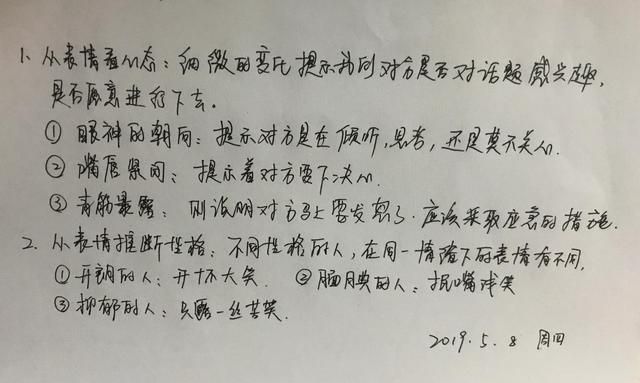 1、从表情看心态：细微的变化提示我们对方是否对话题感兴趣，
是否愿意进行下去。
① 眼神的朝向：提示对方是在倾听，思考，还是莫不关心.
② 嘴唇紧闭：提示着对方要下决心.
③ 青筋暴露：则说明对方马上要发怒了.应该采取应急的措施.
2、从表情推断性格：不同性格的人，在同一情境下的表情有不同.
①开朗的人：开怀大笑. ②腼腆的人：抿嘴浅笑
③抑郁的人：只露一丝苦笑.
2019.5.8 周四